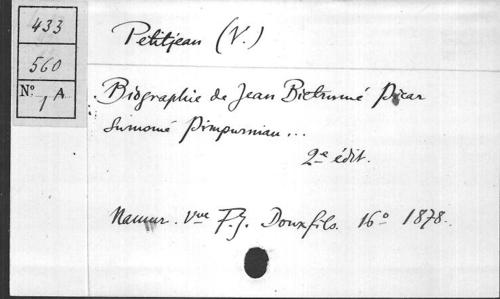 433
560
N° 1 A
Petitjean (V.)
Biographie de Jean Bietrumé Picar
Surnomé Pimpurniau...
2e édit.
Namur. Vve F.J. Douxfils. 16° 1878.